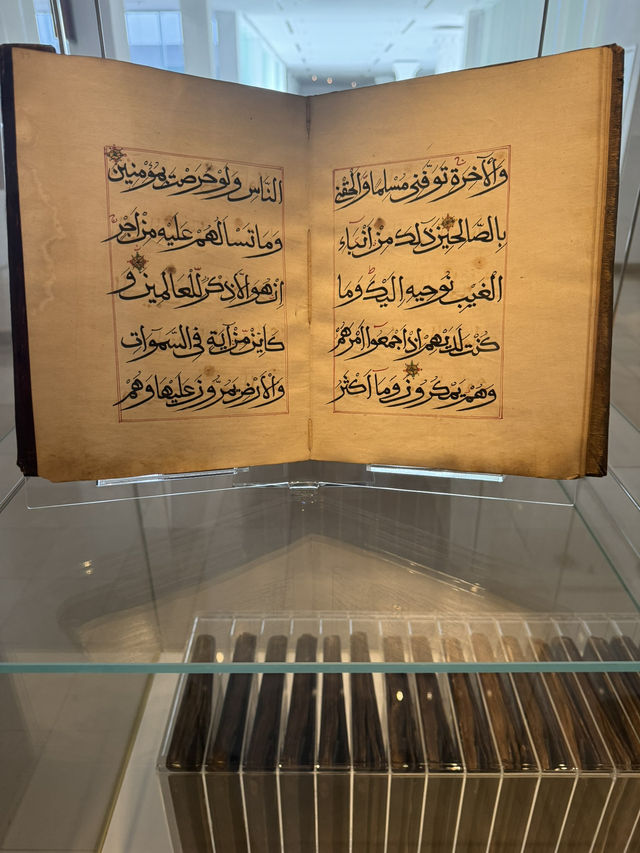 وَالْآخِرَةِ تَوَفَّنِى مُسْلِمًا وَأَلْحِقْنِى
بِالصَّالِحِينَ ذَلِكَ مِنْ أَنْبَاءِ
الْغَيْبِ نُوحِيهِ إِلَيْكَ وَمَا
كُنْتَ لَدَيْهِمْ إِذْ أَجْمَعُوا أَمْرَهُمْ
وَهُمْ يَمْكُرُونَ وَمَا أَكْثَرُ
النَّاسِ وَلَوْ حَرَصْتَ بِمُؤْمِنِينَ
وَمَا تَسْأَلُهُمْ عَلَيْهِ مِنْ أَجْرٍ
إِنْ هُوَ إِلَّا ذِكْرٌ لِلْعَالَمِينَ وَ
كَأَيِّنْ مِنْ آيَةٍ فِى السَّمَوَاتِ
وَالْأَرْضِ يَمُرُّونَ عَلَيْهَا وَهُمْ